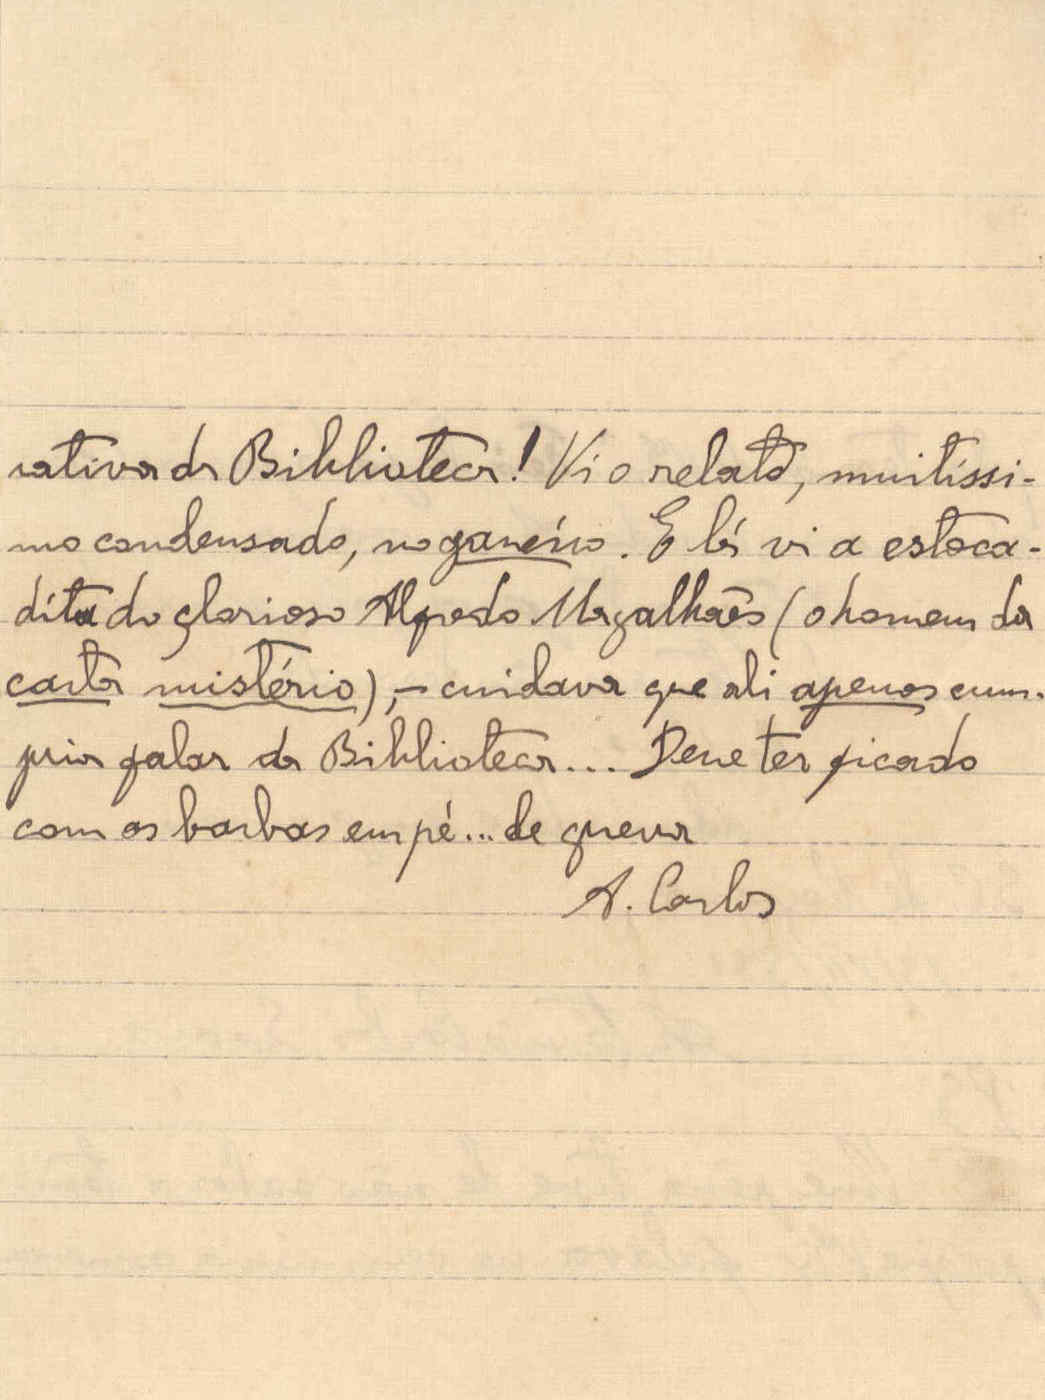 rativa da Biblioteca! Vi o relato, muitíssi-
mo condensado, no janeiro. E lá vi a estoca-
dita do glorioso Alfredo Magalhães (o homem da
carta mistério), - cuidava que ali apenas cum-
pria falar da Biblioteca... Deve ter ficado
com as barbas em pé... de
A. Carlos